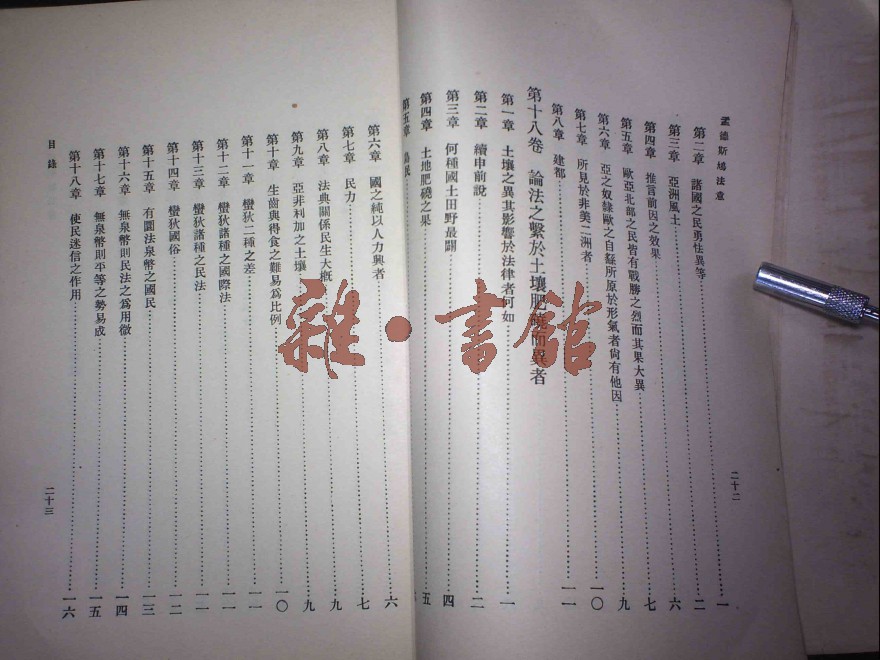 孟德斯鳩法意
第二章 諸國之民勇怯異等 一
第三章 亞洲風土 二
第四章 推言前因之效果 六
第五章 歐亞北部之民皆有戰勝之烈而其果大異 七
第六章 亞之奴隸歐之自繇所原於形氣者尙有他因 九
第七章 所見於非美二洲者 一〇
第八章 建都 一一
第十八卷 論法之繫於土壤肥磽而異者
第一章 土壤之異其影響於法律者何如 一
第二章 續申前說 二
第三章 何種國土田野最闢 四
第四章 土地肥磽之果 五
第五章 島民
二十二
第六章 國之純以人力興者 六
第七章 民力 七
第八章 法典關係民生大槪 九
第九章 亞非利加之土壤 九
第十章 生齒與得食之難易爲比例 一〇
第十一章 蠻狄二種之差 一一
第十二章 蠻狄諸種之國際法 一一
第十三章 蠻狄諸種之民法 一一
第十四章 蠻狄國俗 一二
第十五章 有圜法泉幣之國民 一三
第十六章 無泉幣則民法之爲用微 一四
第十七章 無泉幣則平等之勢易成 一五
第十八章 使民迷信之作用 一六
目錄
二十三
雜·書館